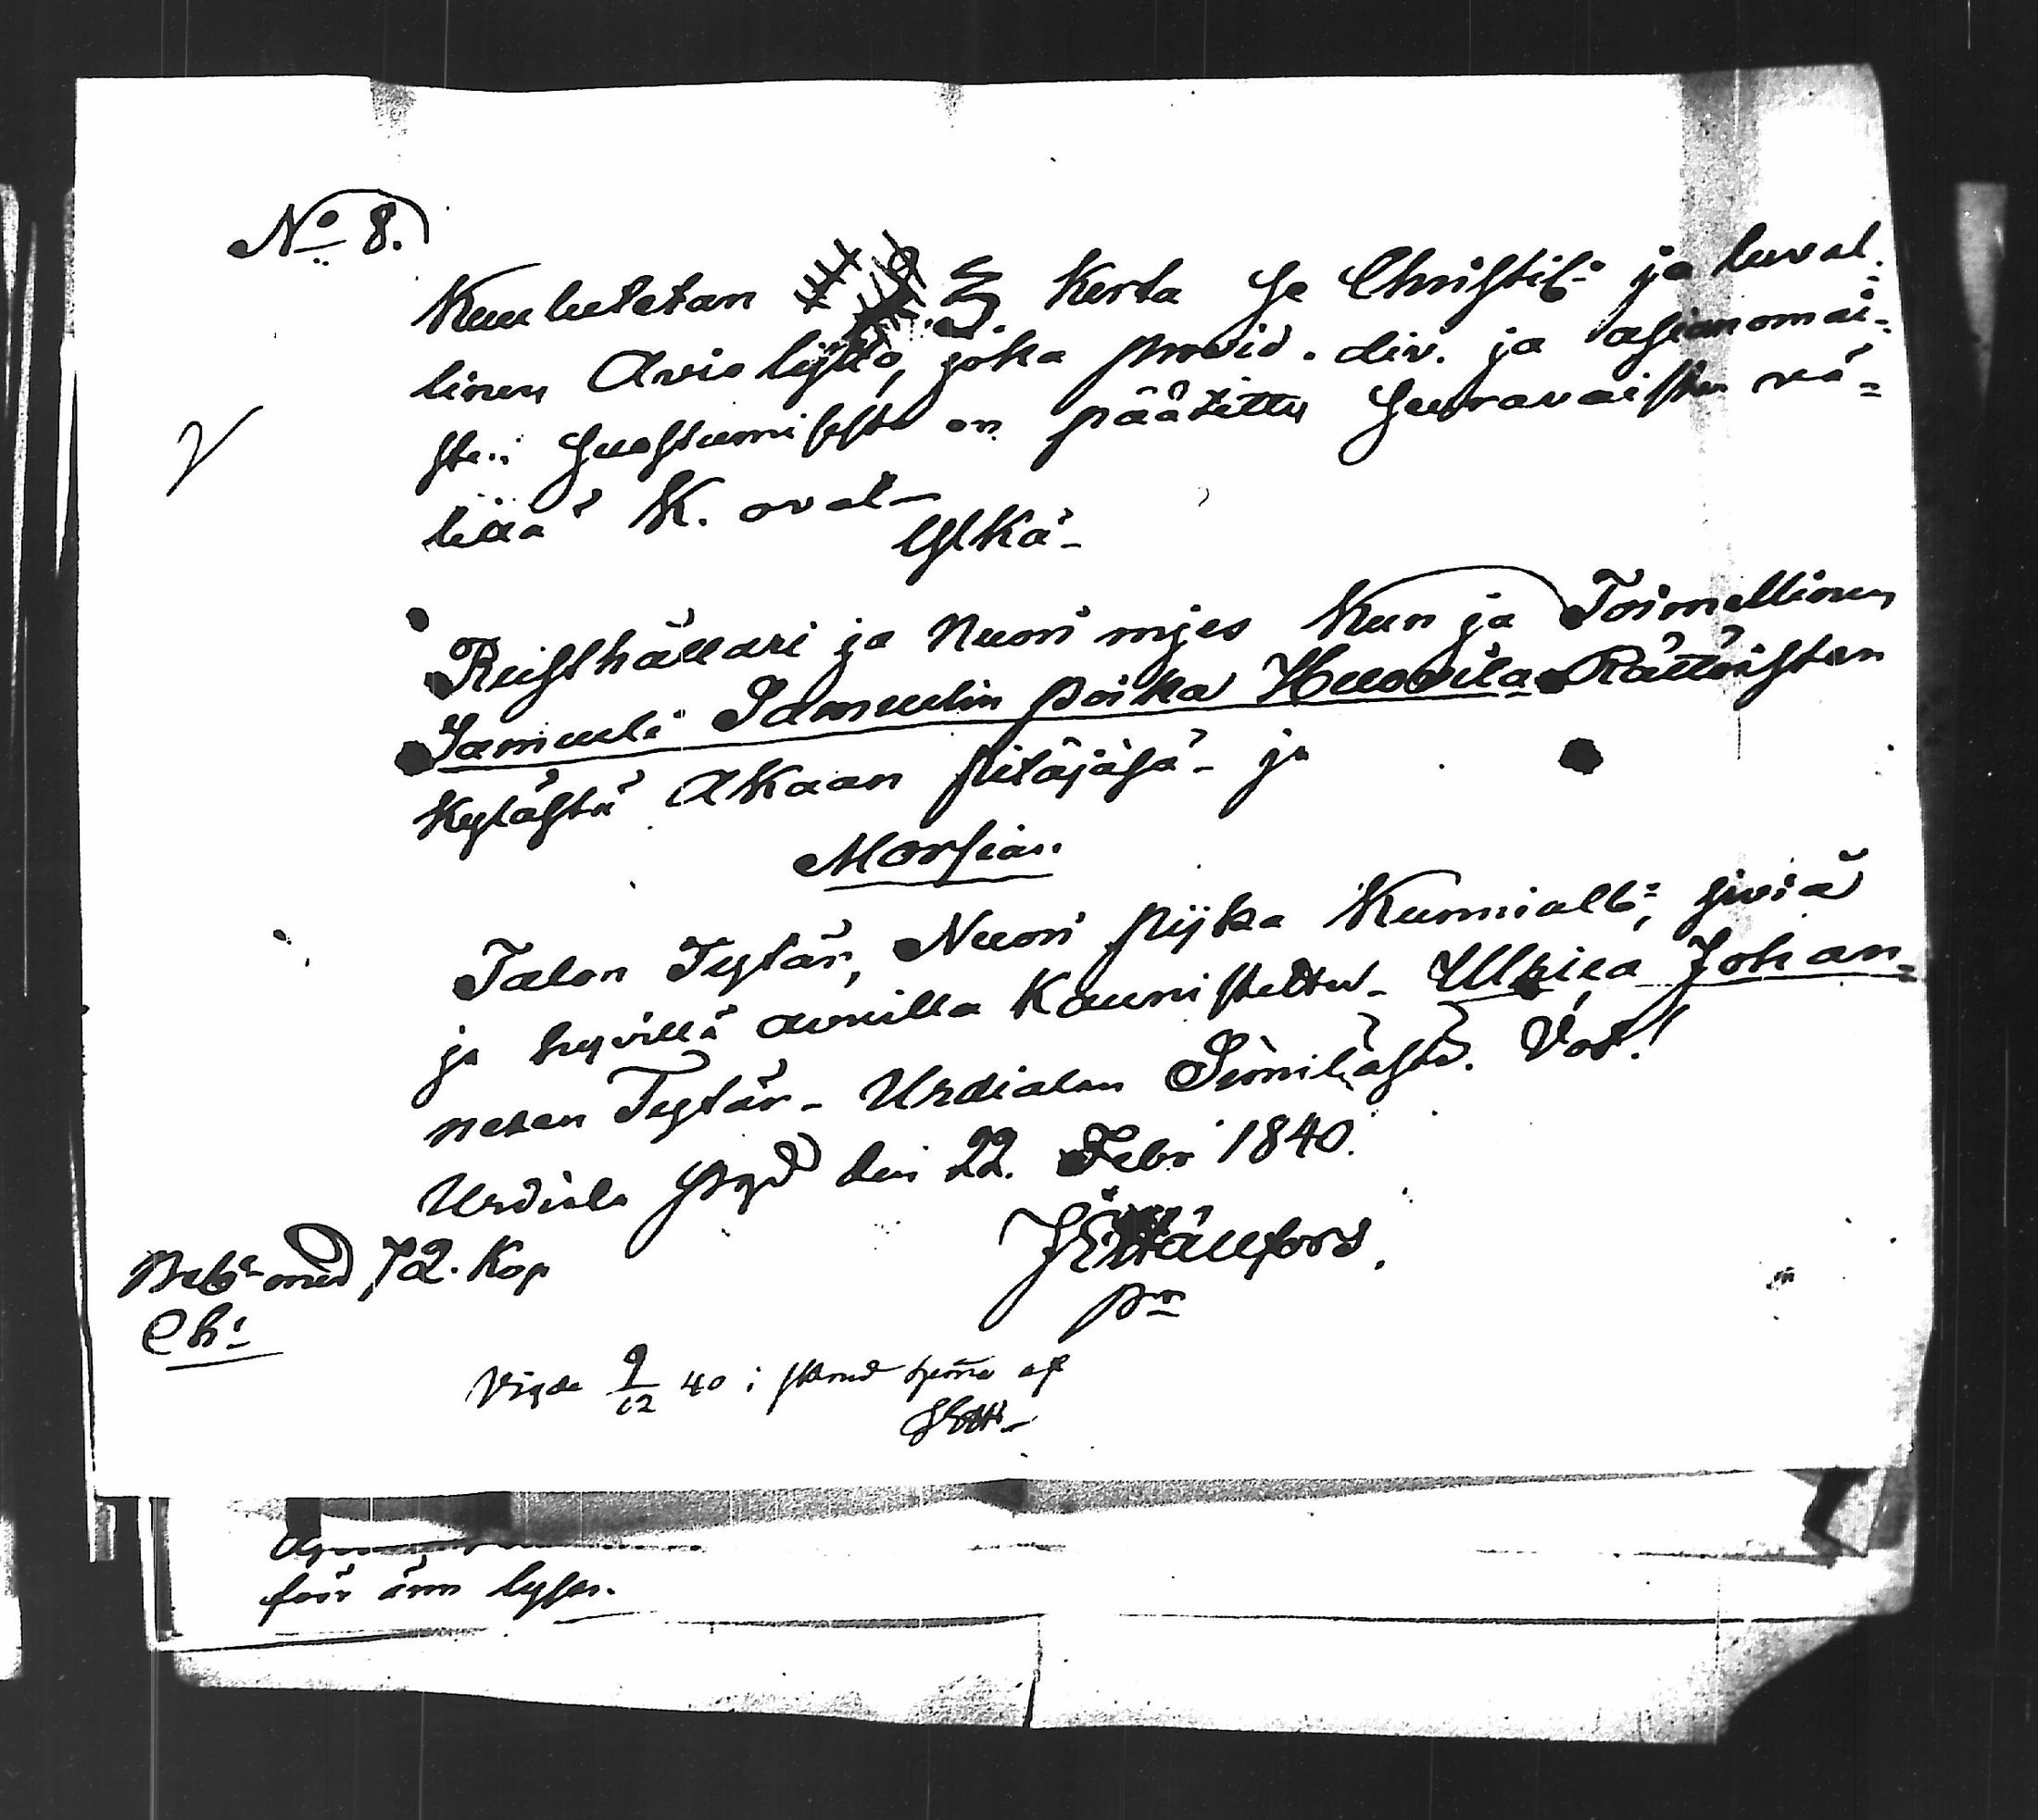 No 8.
Kuulutetan 3. Kerta Se Christil: ja luval-
linen Avio liitto, joka provid. div. ja asianomai-
sten Suostumisesta on päätetty Seuravaisten vä-
lillä K. ovat
Ylkä-
Rusthållari ja Nuori mjes Kun ja Toimellinen
Samueli Samuelin poika Huovila Rättöistän
Kylästä Akaan pitäjäsä- ja
Morsian.
Talon Tytär, Nuori pijka Kunniall:, siviä
ja hyvillä avuilla Kaunistettu- Ulrica Johan-
neten Tytär- Urdialan Similäste. Vot!
Urdiala Prgd den 22. Febr 1840.
JEHällfors.
pr
Bet: med 72. Kop
Vigde 9/12 40 i hemma af
JEH-
för änn lyser.